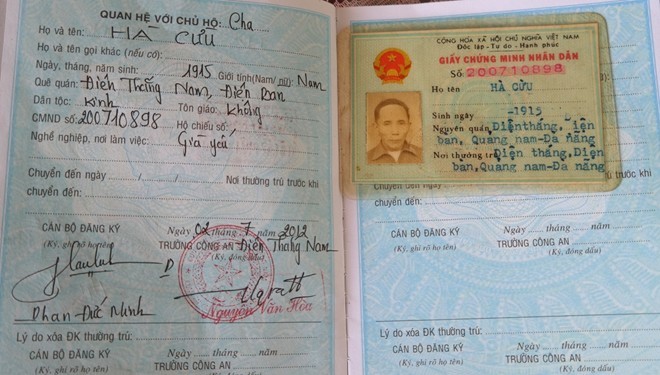 QUAN HỆ VỚI CHỦ HỘ: Cha
Họ và tên: HÀ CƯU
Họ và tên gọi khác (nếu có):
Ngày, tháng, năm sinh: 1915 Giới tính (Nam/nữ): Nam
Quê quán: Điện Thắng Nam, Điện Bàn
Dân tộc: Kinh Tôn giáo: Không
CMND số: 200710898 Hộ chiếu số:
Nghề nghiệp, nơi làm việc: Già yếu
Chuyển đến ngày ....../....../...... Nơi thường trú trước khi
chuyển đến:
CÁN BỘ ĐĂNG KÝ
(Ký, ghi rõ họ tên)
Phan Đức Minh
Ngày 02 tháng 7 năm 2012
TRƯỞNG CÔNG AN Điện Thắng Nam
(Ký, đóng dấu)
Nguyễn Văn Hòa
Lý do xóa ĐK thường trú:
CÁN BỘ ĐĂNG KÝ
(Ký, ghi rõ họ tên)
Ngày ...... tháng ...... năm ......
TRƯỞNG CÔNG AN
(Ký, đóng dấu)
CỘNG HÒA XÃ HỘI CHỦ NGHĨA VIỆT NAM
Độc lập - Tự do - Hạnh phúc
GIẤY CHỨNG MINH NHÂN DÂN
Số 200710898
Họ tên HÀ CỬU
Sinh ngày -1915
Nguyên quán Điện thắng, iện
bàn, Quảng nam-Đà nẵng
Nơi thường trú Điện thắng, Điện
bàn, Quảng nam-Đà nẵng
trú trước khi
chuyển đến:
CÁN BỘ ĐĂNG KÝ
(Ký, ghi rõ họ tên)
Ngày ...... tháng ...... năm ......
TRƯỞNG CÔNG AN
(Ký, đóng dấu)
Lý do xóa ĐK thường trú:
CÁN BỘ ĐĂNG KÝ
(Ký, ghi rõ họ tên)
Ngày ...... tháng ...... năm ......
TRƯỞNG CÔNG AN
(Ký, đóng dấu)